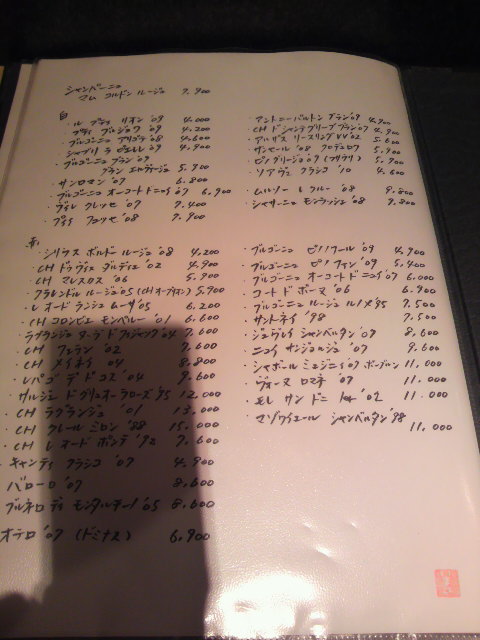 シャンパーニュ
マム コルドン ルージュ 7,900
白
・ル プティ リオン '09 4,000
・プティ ブルジョワ '09 4,200
・ブルゴーニュ アリゴテ '08 4,600
・シャブリ ラ ピエレレ '09 4,900
・ブルゴーニュ ブラン '09
グラン エルヴァージュ 5,900
・サンロマン '07 6,800
・ブルゴーニュ オーコート ド ニュイ '07 6,900
・ヴィレ クレッセ '07 7,400
・プイィ フュッセ '08 7,900
・アントニーバルトン ブラン '09 4,900
・CH ド シャンテグリーブ ブラン '07 4,900
・アルザス リースリング VV '02 5,600
・サンセール '08 クロデュロワ 5,900
・ピノグリージョ '09 (フリウリ) 5,900
・ソアヴェ クラシコ '10 4,600
・ムルソー レ クルー '08 9,800
・シャサーニュ モンラッシェ '08 9,800
赤
・シリウス ボルドー ルージュ '08 4,200
・CH ドゥヴィス ダルディエ '02 4,900
・CH マレスカス '06 5,900
・フラレンドル ルージュ '05 (CH オーブリオン) 5,900
・レ オード ランシュ ムーサ '05 6,200
・CH コロンビエ モンペルー '01 6,600
・ラグランジュ 04 7,600
・CH フェラン '02 7,600
・CH メイネイ 04 8,800
・レ パゴ デ ド コス '04 9,600
・サルジェ ド グリュオーラローズ '95 12,000
・CH ラグランジュ '01 13,000
・CH クレール ミロン '88 15,000
・CH レ オード ポンテ '92 7,600
・キャンティ クラシコ '07 4,900
・バローロ '07 8,600
・ブルネロ ディ モンタルチーノ '05 8,600
オテロ '07 (ドミナス) 6,900
・ブルゴーニュ ピノノワール '09 4,900
・ブルゴーニュ ピノ ファン '09 5,400
・ブルゴーニュ オーコート ド ニュイ '07 6,000
・コート ド ボーヌ '06 6,900
・ブルゴーニュ ルージュ ルロワ '95 7,500
・サントネイ '98 7,500
・ジュヴレイ シャンベルタン '07 8,600
・ニュイ サンジョルジュ '07 9,600
・シャンボール ミュジニィ '07 11,000
・ヴォーヌ ロマネ '07 11,000
・モレ サン ドニ 1er '02 11,000
・マゾワイエール シャンベルタン '98
11,000